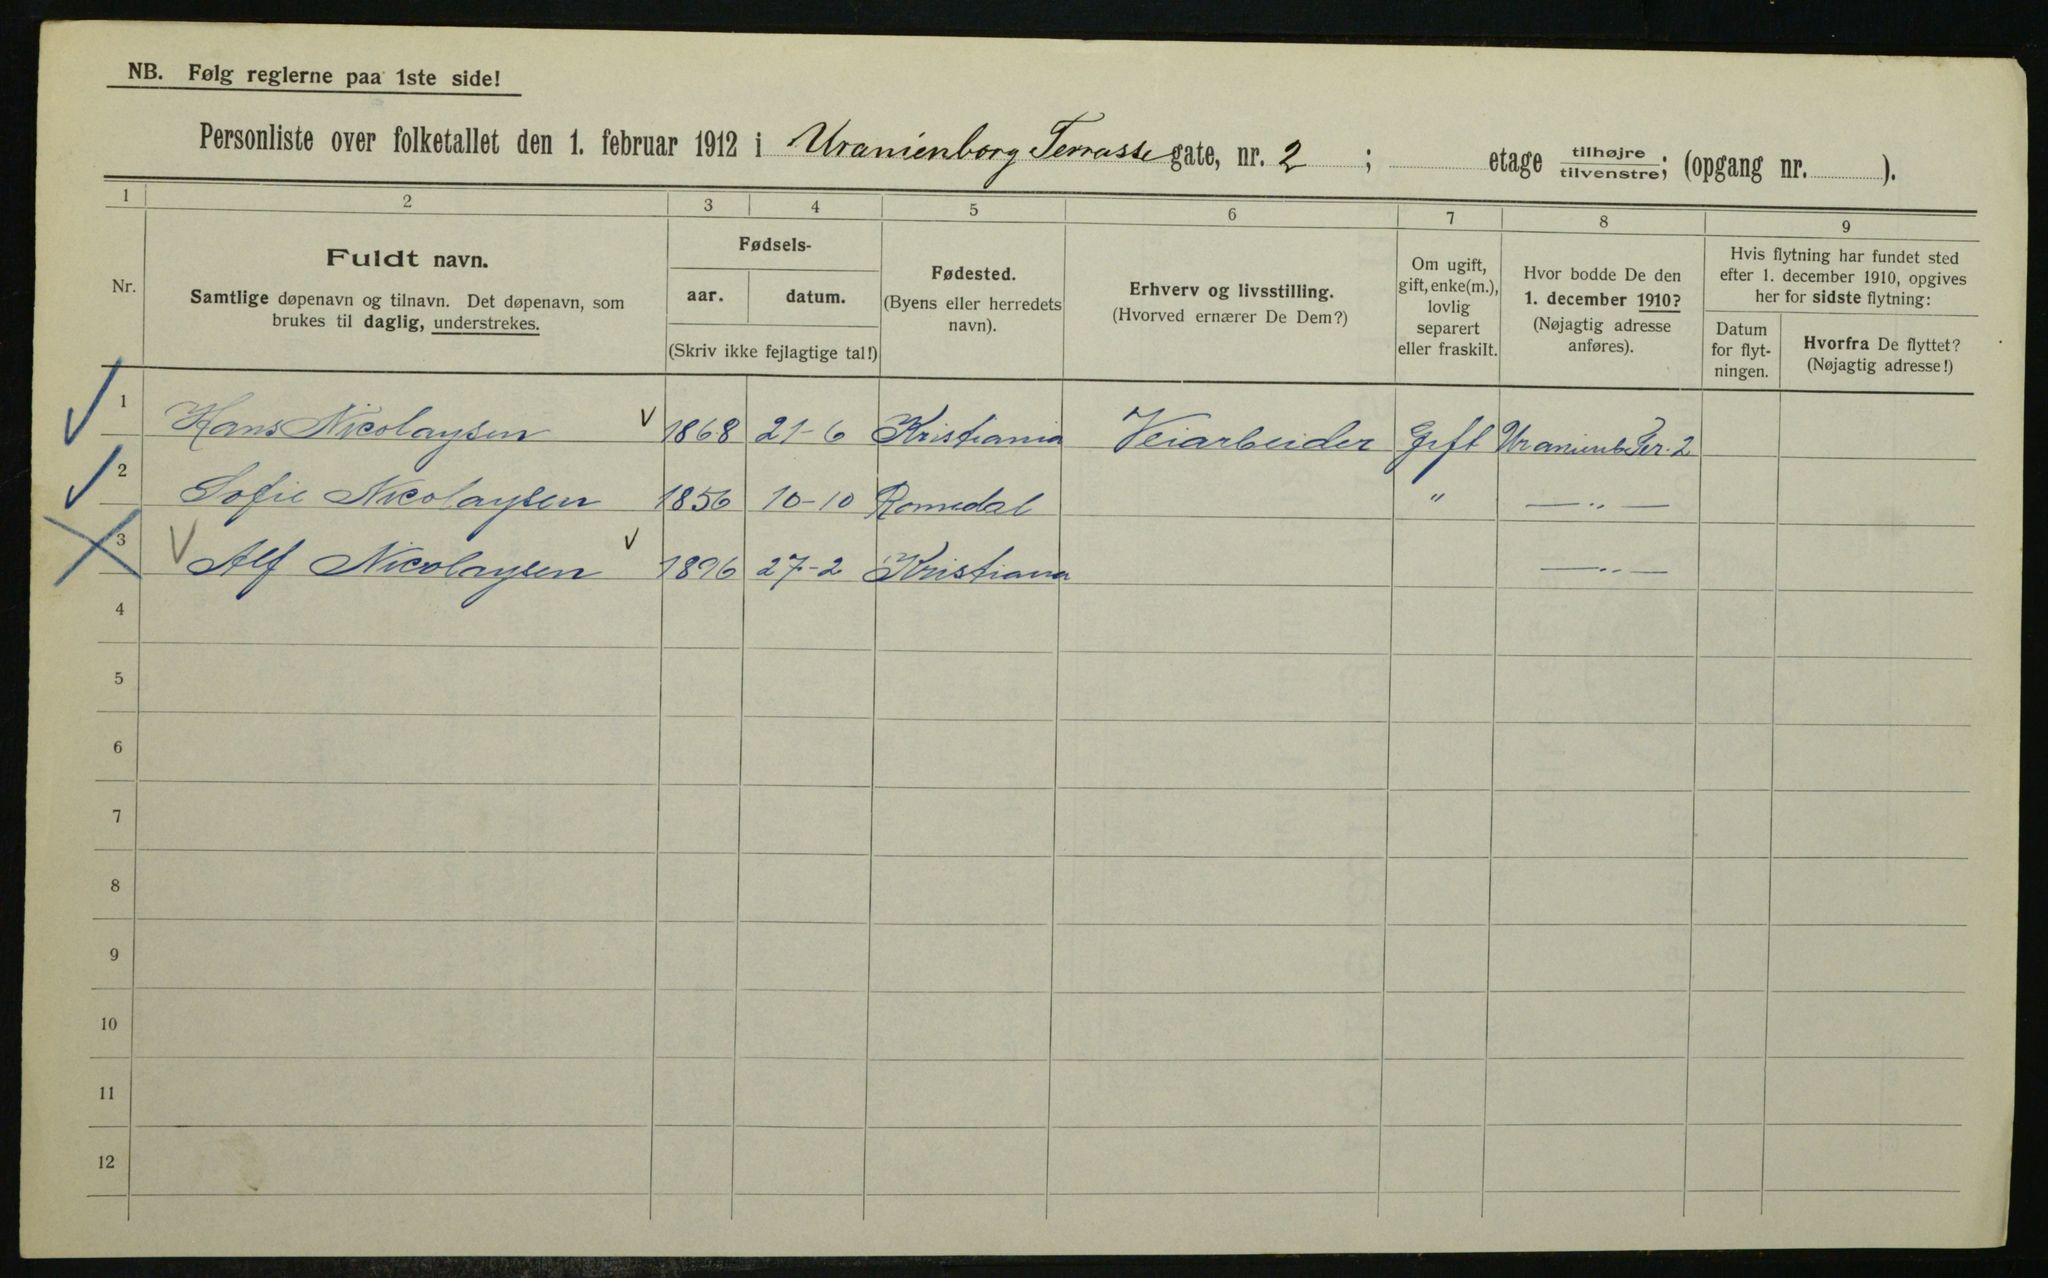 NB. Følg reglerne paa 1ste side!
Personliste over folketallet den 1. februar 1912 i Uranienborg Terrasse gate, nr. 2 ; etage tilhøjre/tilvenstre; (opgang nr. ).
1 2 3 4 5 6 7 8 9
Nr.
Fuldt navn.
Samtlige døpenavn og tilnavn. Det døpenavn, som
brukes til daglig, understrekes.
Fødsels-
aar. datum.
(Skriv ikke fejlagtige tal!)
Fødested.
(Byens eller herredets
navn).
Erhverv og livsstilling.
(Hvorved ernærer De Dem?)
Om ugift,
gift, enke(m.),
lovlig
separert
eller fraskilt.
Hvor bodde De den
1. december 1910?
(Nøjagtig adresse
anføres).
Hvis flytning har fundet sted
efter 1. december 1910, opgives
her for sidste flytning:
Datum
for flyt-
ningen.
Hvorfra De flyttet?
(Nøjagtig adresse!)
1 Hans Nicolaysen 1868 21-6 Kristiania Veiarbeider Gift Uranienb Ter. 2
2 Sofie Nicolaysen 1856 10-10 Romedal " — „ —
3 Alf Nicolaysen 1896 27-2 Kristiana — „ —
4
5
6
7
8
9
10
11
12